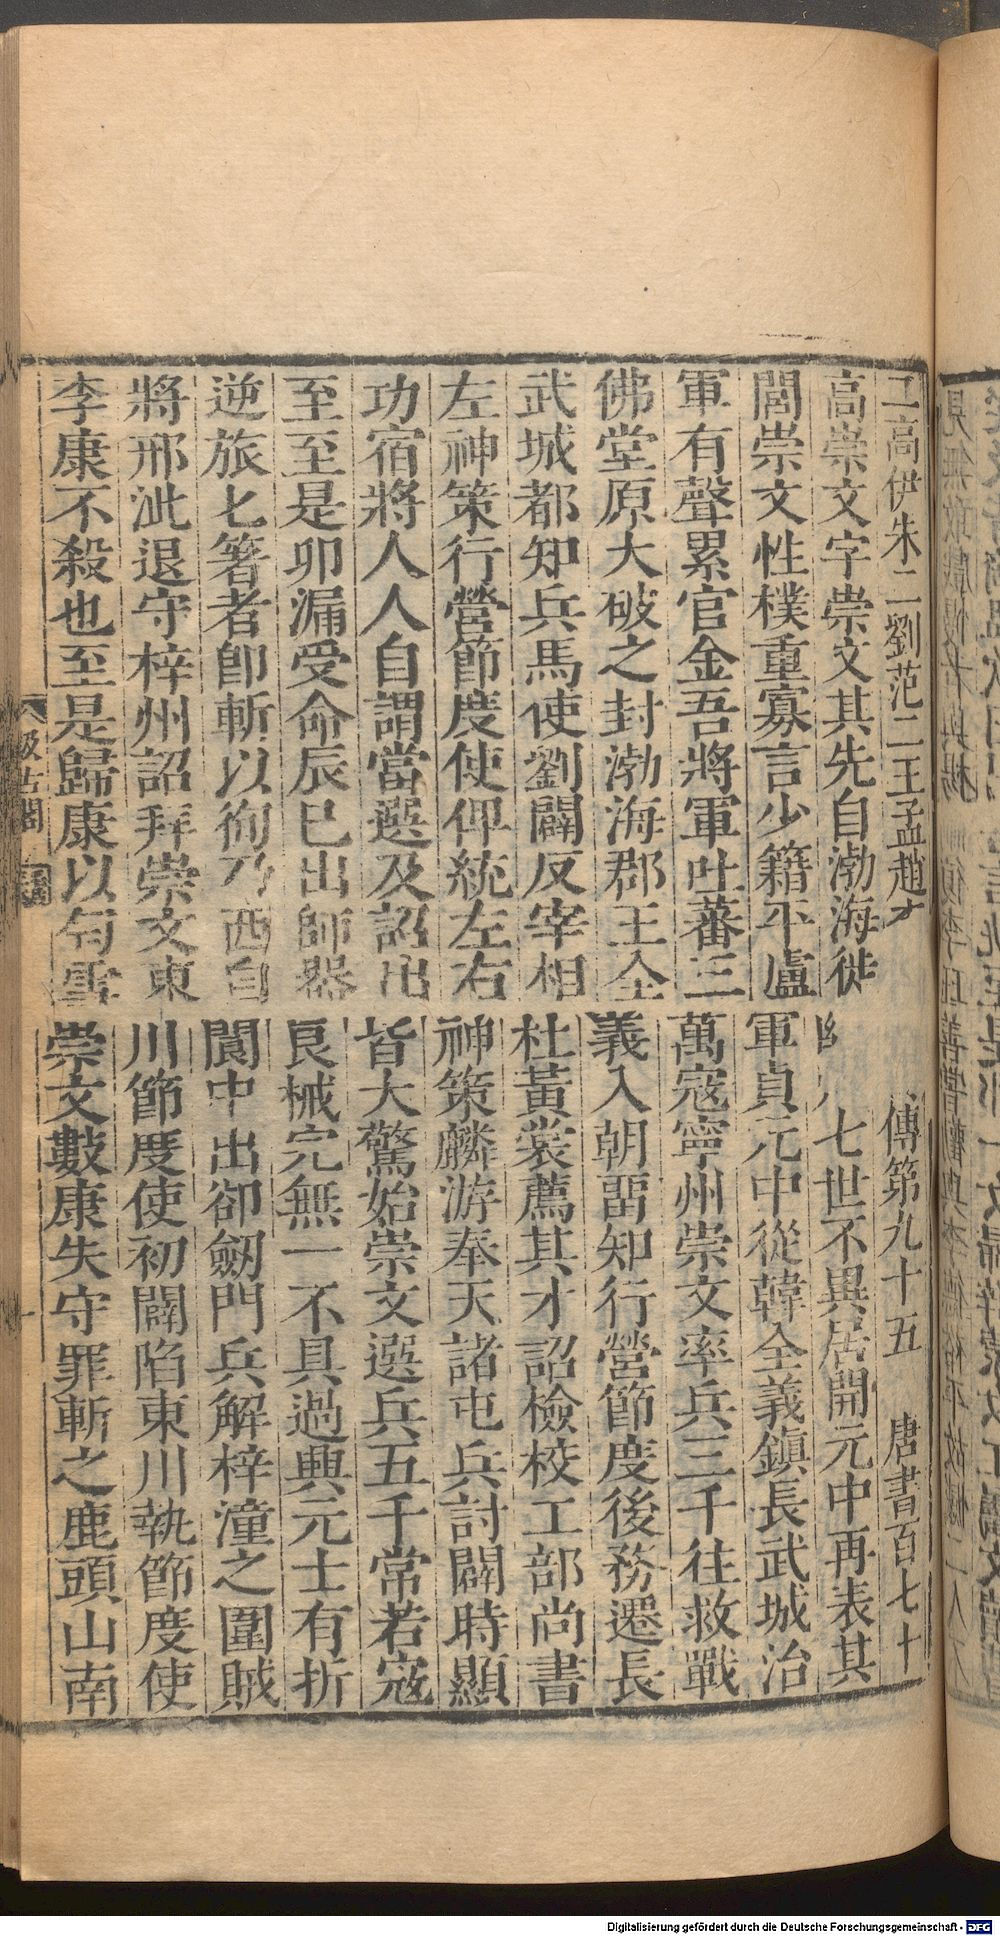 二高伊朱二劉范二王孟趙 傳第九十五 唐書百七十
高崇文字崇文其先自渤海徙幽 七世不異居開元中再表其
閭崇文性樸重寡言少籍平盧軍貞元中從韓全義鎮長武城治
軍有聲累官金吾將軍吐蕃三萬寇寧州崇文率兵三千往救戰
佛堂原大破之封渤海郡王全義入朝畱知行營節度後務遷長
武城都知兵馬使劉闢反宰相杜黃裳薦其才詔檢校工部尚書
左神策行營節度使俾統左右神策麟游奉天諸屯兵討闢時顯
功宿將人人自謂當選及詔出皆大驚始崇文選兵五千常若寇
至至是卯漏受命辰巳出師器良械完無一不具過興元士有折
逆旅匕箸者卽斬以徇乃西自閬中出卻劒門兵解梓潼之圍賊
將邢泚退守梓州詔拜崇文東川節度使初闢陷東川執節度使
李康不殺也至是歸康以匄雪崇文數康失守罪斬之鹿頭山南
汲古閣
Digitalisierung gefördert durch die Deutsche Forschungsgemeinschaft - DFG